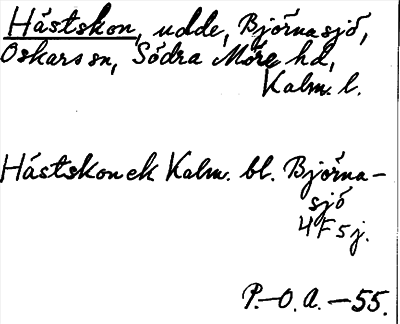 Hästskon, udde, Björnasjö,
Oskars sn, Södra Möre hd,
Kalm. l.
Hästskon ek. Kalm. bl. Björna-
sjö
4F5j.
P.-O. A. -55.